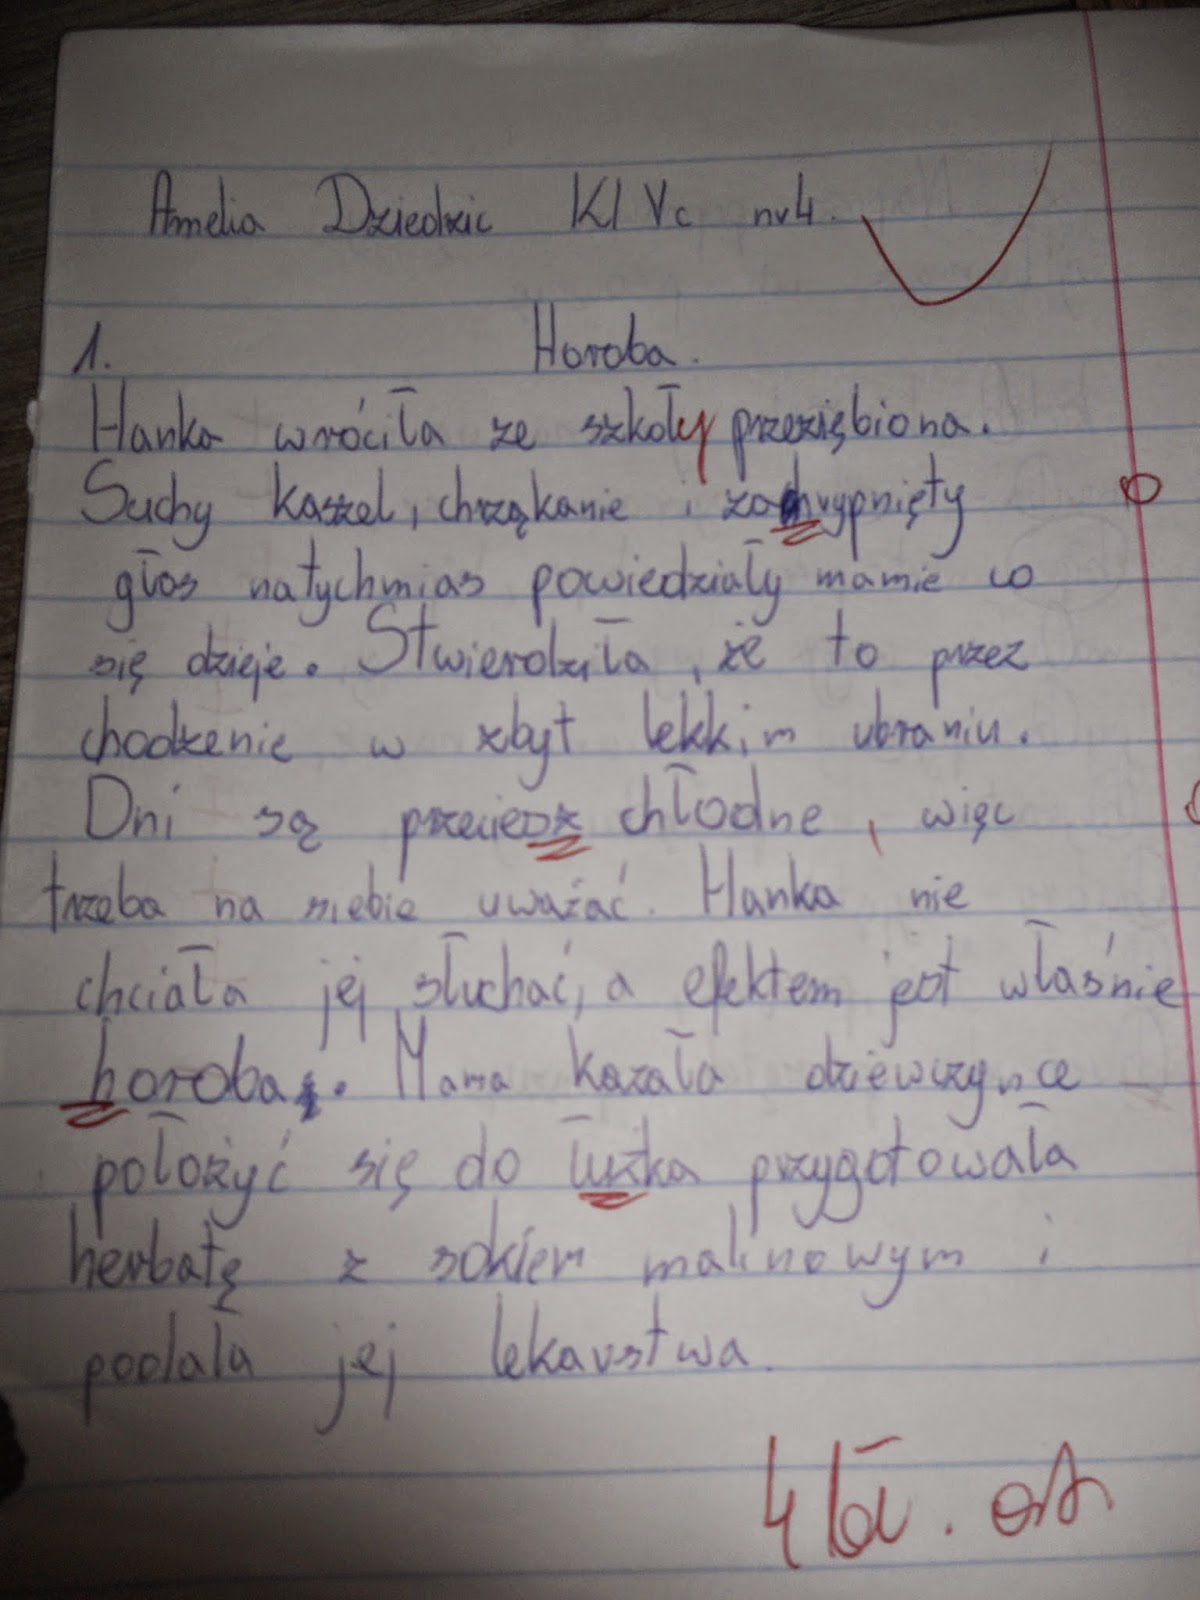 Amelia Dziedzic Kl Vc nr 4.
1. Horoba.
Hanka wróciła ze szkoły przeziębiona.
Suchy kaszel, chrząkanie i zachrypnięty
głos natychmias powiedziały mamie co
się dzieje. Stwierdziła, że to przez
chodzenie w zbyt lekkim ubraniu.
Dni są przeciesz chłodne, więc
trzeba na siebie uważać. Hanka nie
chciała jej słuchać, a efektem jest właśnie
horoba. Mama kazała dziewczynce
położyć się do łużka przygotowała
herbatę z sokiem malinowym i
podała jej lekarstwa.
4 bł. ort.